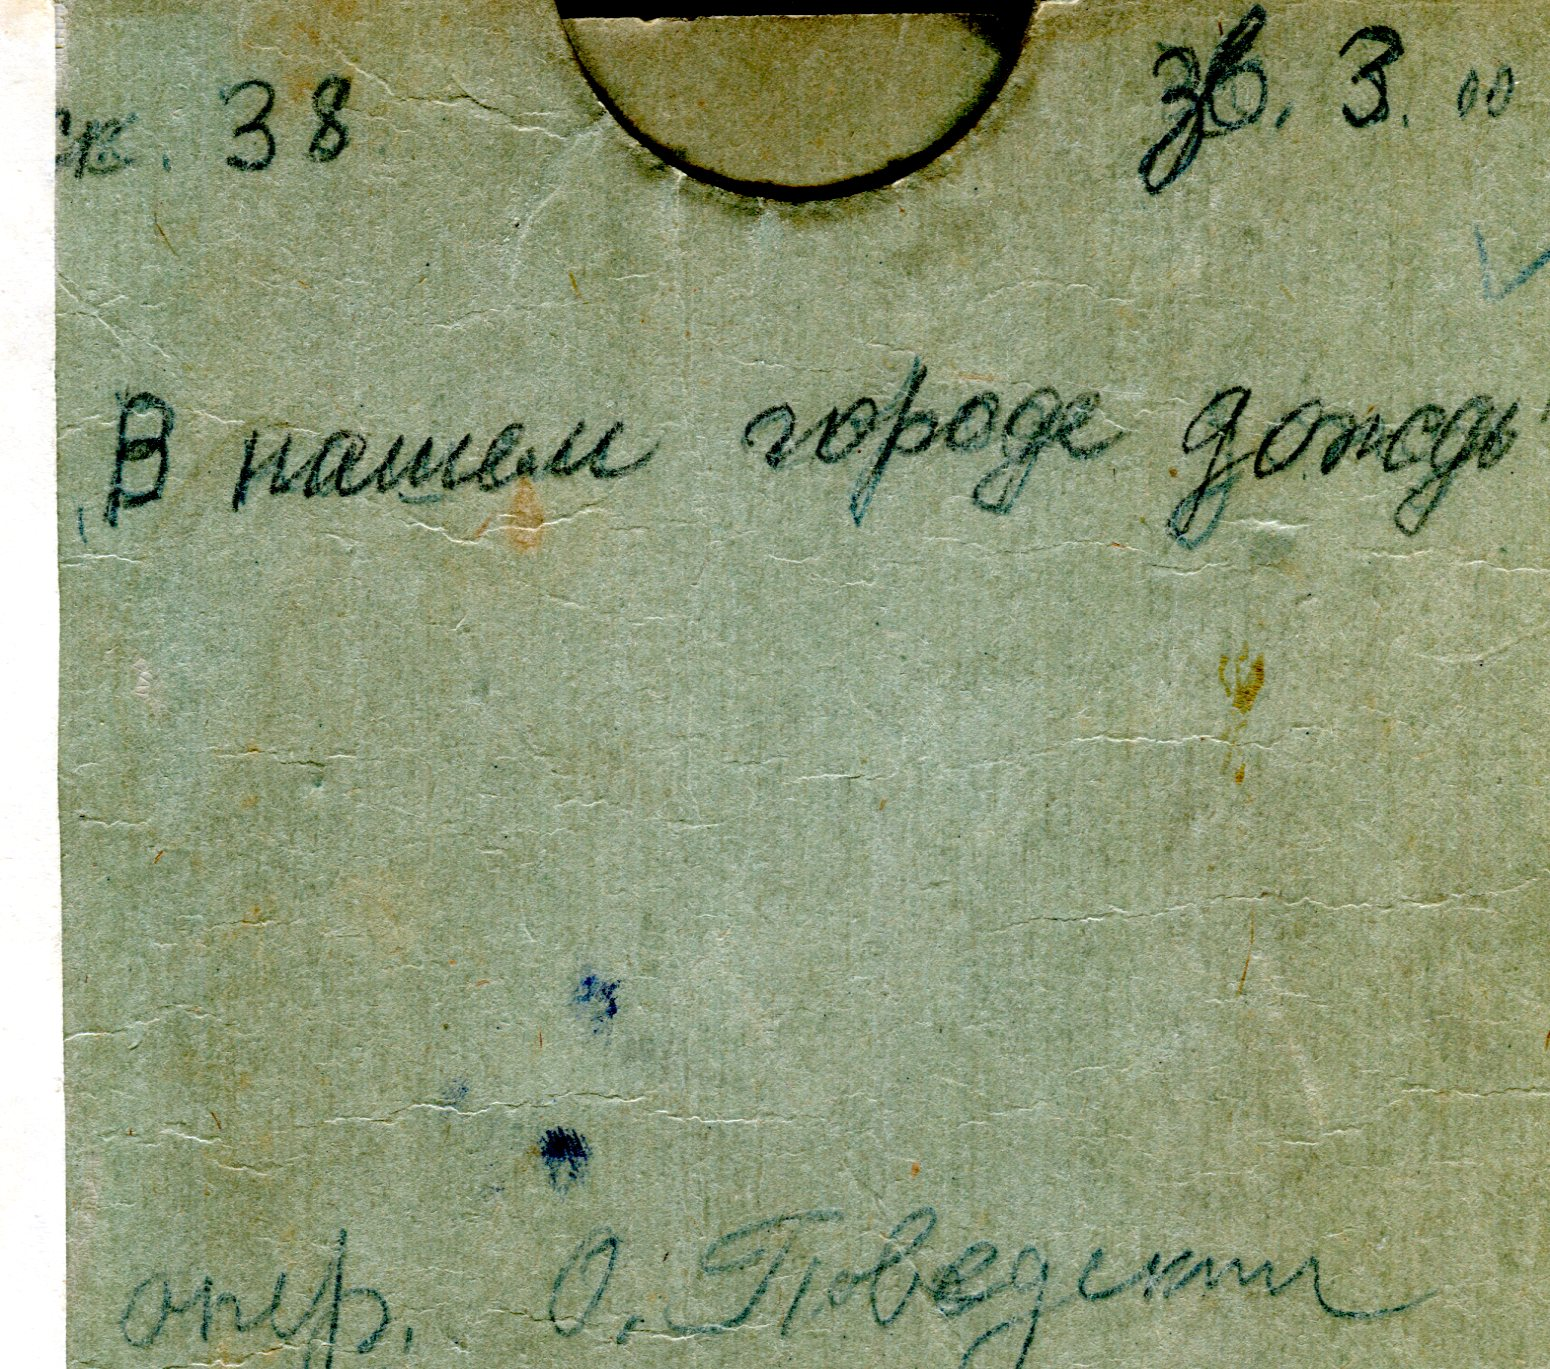 ск. 38 зв. 3.00
„В нашем городе дождь"
опер. О. Поведский